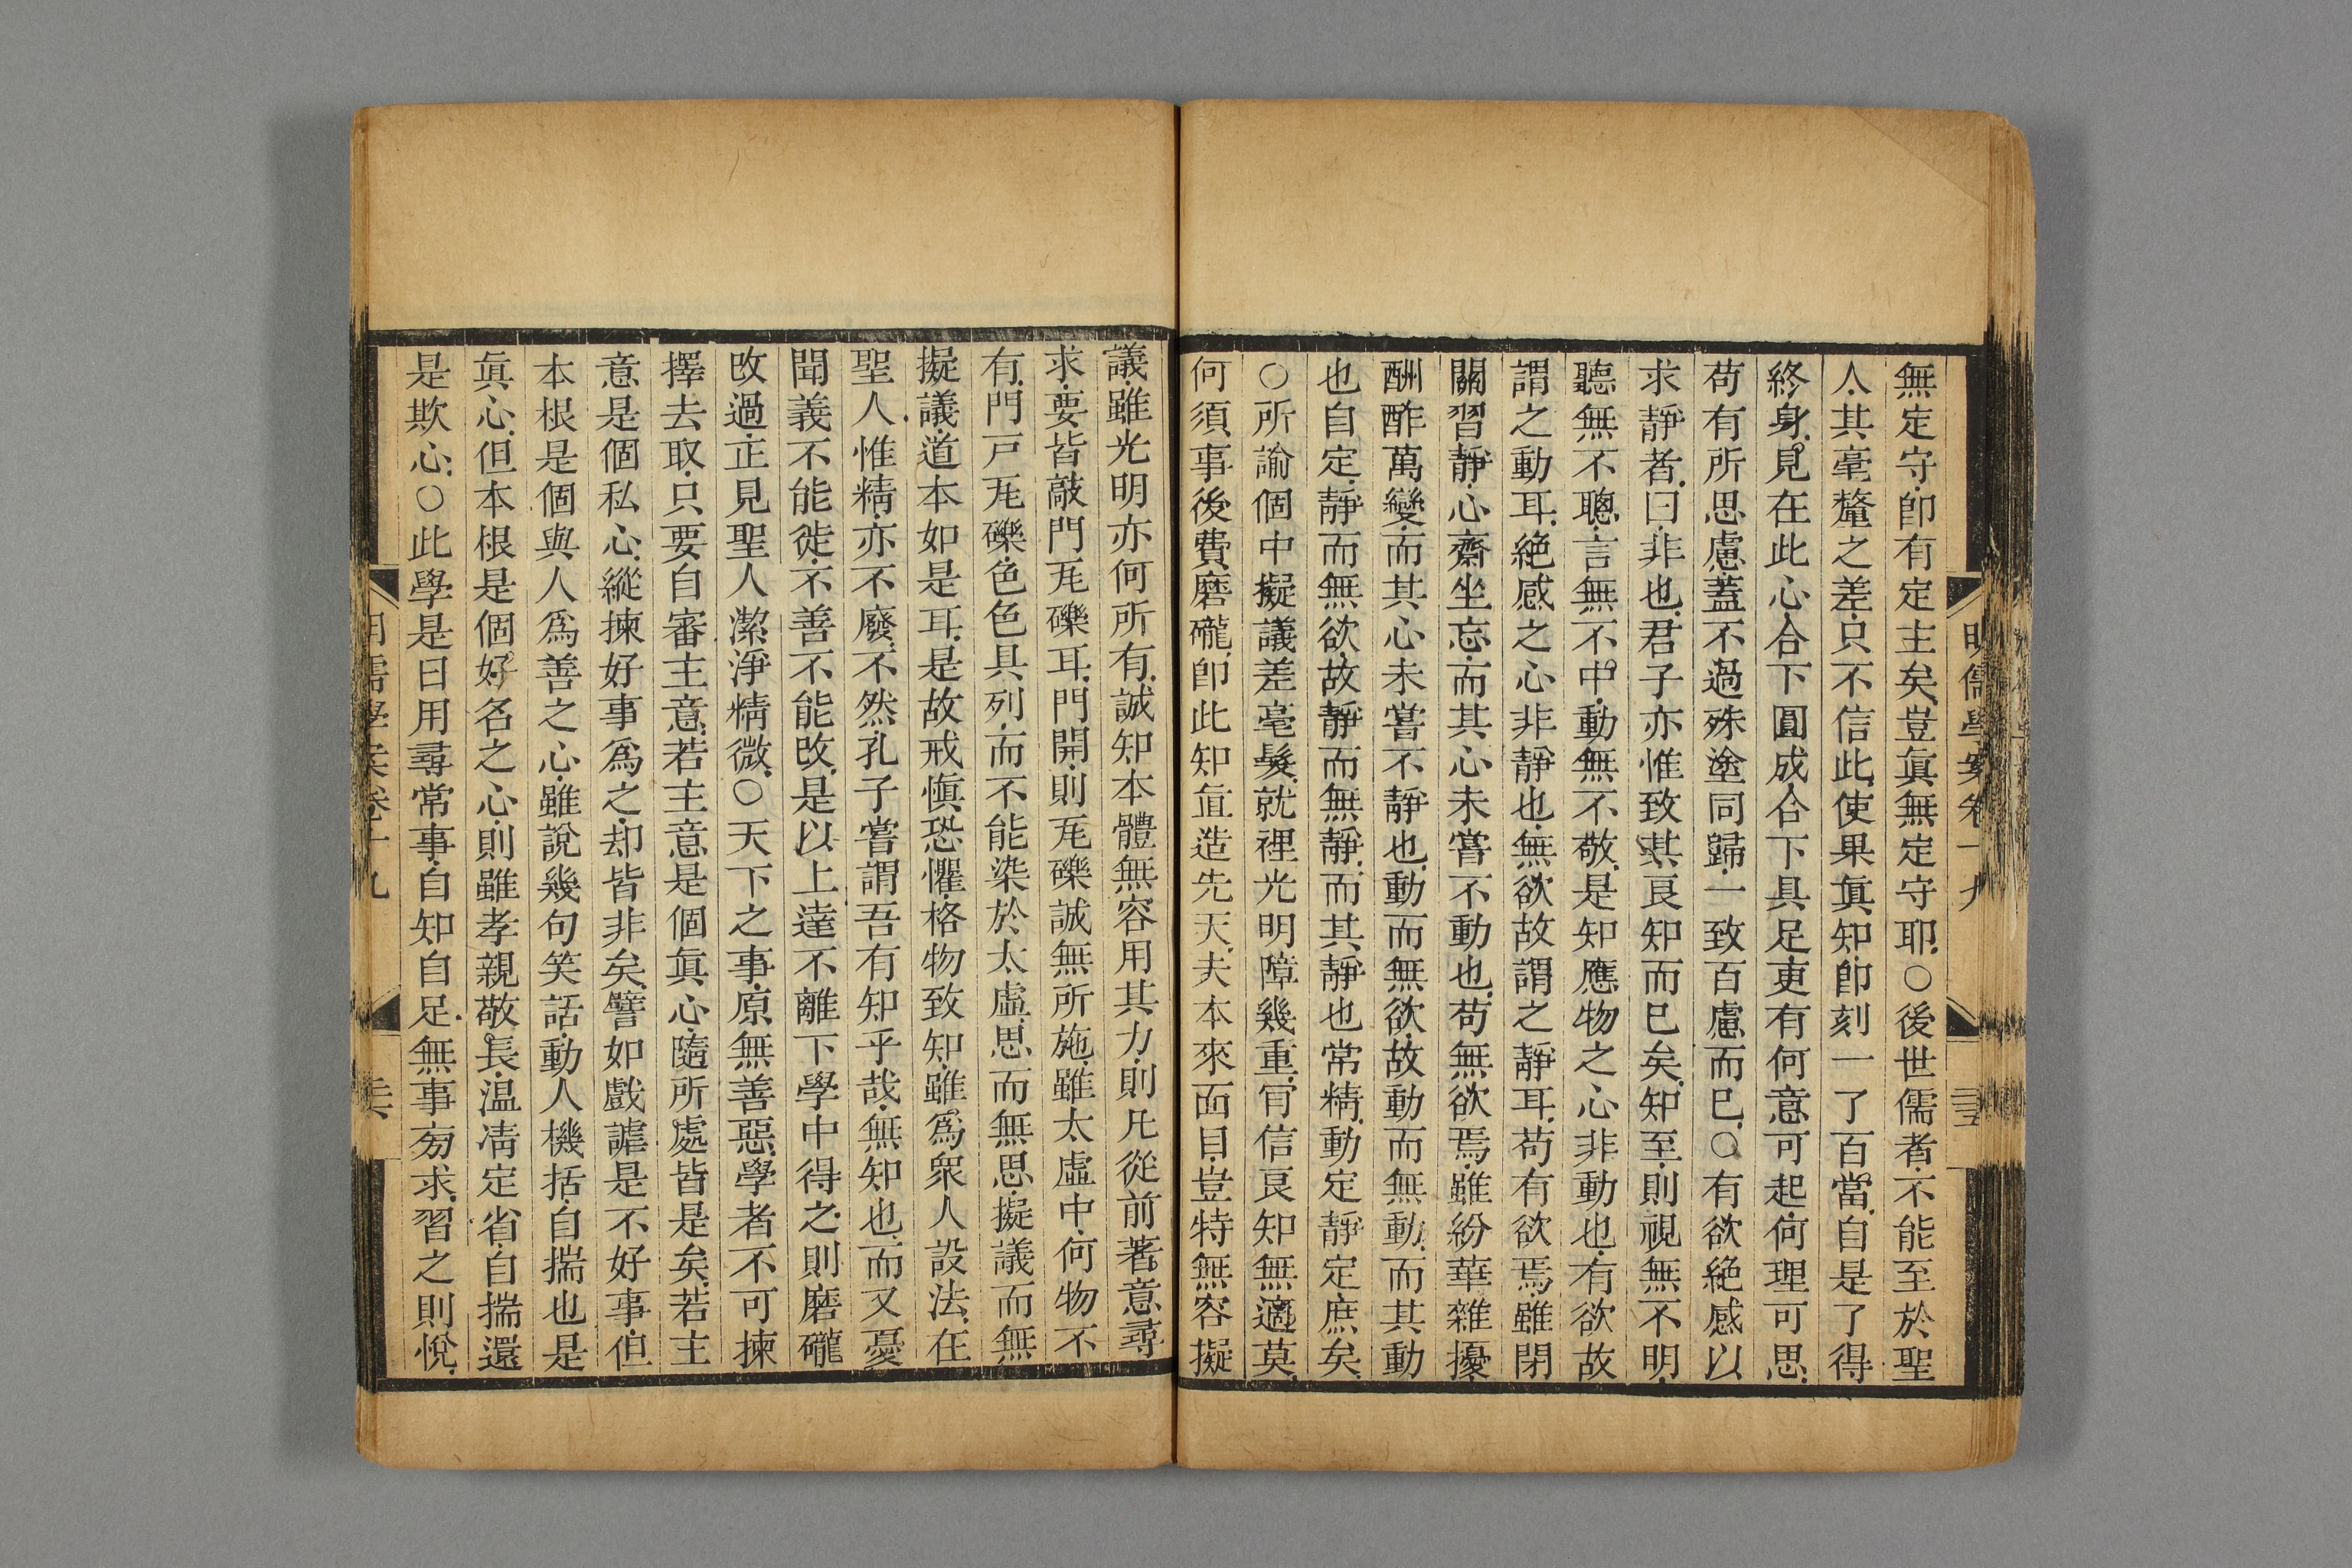 明儒學案卷十九
無定守.卽有定主矣.豈眞無定守耶.○後世儒者.不能至於聖
人.其毫釐之差.只不信此.使果眞知.卽刻一了百當.自是了得
終身.見在此心.合下圓成.合下具足.更有何意可起.何理可思.
苟有所思慮.蓋不過殊塗同歸.一致百慮而已.○有欲絕感以
求靜者.曰.非也.君子亦惟致其良知而已矣.知至.則視無不明.
聽無不聰.言無不中.動無不敬.是知應物之心非動也.有欲故
謂之動耳.絕感之心非靜也.無欲故謂之靜耳.苟有欲焉.雖閉
關習靜.心齋坐忘.而其心未嘗不動也.苟無欲焉.雖紛華雜擾.
酬酢萬變.而其心未嘗不靜也.動而無欲.故動而無動.而其動
也自定.靜而無欲.故靜而無靜.而其靜也常精.動定靜定庶矣.
○所諭個中擬議差毫髮.就裡光明障幾重.肎信良知無適莫.
何須事後費磨礲.卽此知直造先天.夫本來面目.豈特無容擬
議.雖光明亦何所有.誠知本體無容用其力.則凡從前著意尋
求.要皆敲門瓦礫耳.門開.則瓦礫誠無所施.雖太虛中.何物不
有.門戸瓦礫.色色具列.而不能染於太虛.思而無思.擬議而無
擬議.道本如是耳.是故戒愼恐懼.格物致知.雖爲衆人設法.在
聖人.惟精亦不廢.不然.孔子嘗謂吾有知乎哉.無知也.而又憂
聞義不能徙.不善不能改.是以上達不離下學中得之.則磨礲
改過.正見聖人潔淨精微.○天下之事.原無善惡.學者不可揀
擇去取.只要自審主意.若主意是個眞心.隨所處皆是矣.若主
意是個私心.縱揀好事爲之.却皆非矣.譬如戲謔是不好事.但
本根是個與人爲善之心.雖說幾句笑話.動人機括.自揣也是
眞心.但本根是個好名之心.則雖孝親敬長.温凊定省.自揣還
是欺心.○此學是日用尋常事.自知自足.無事旁求.習之則悅.